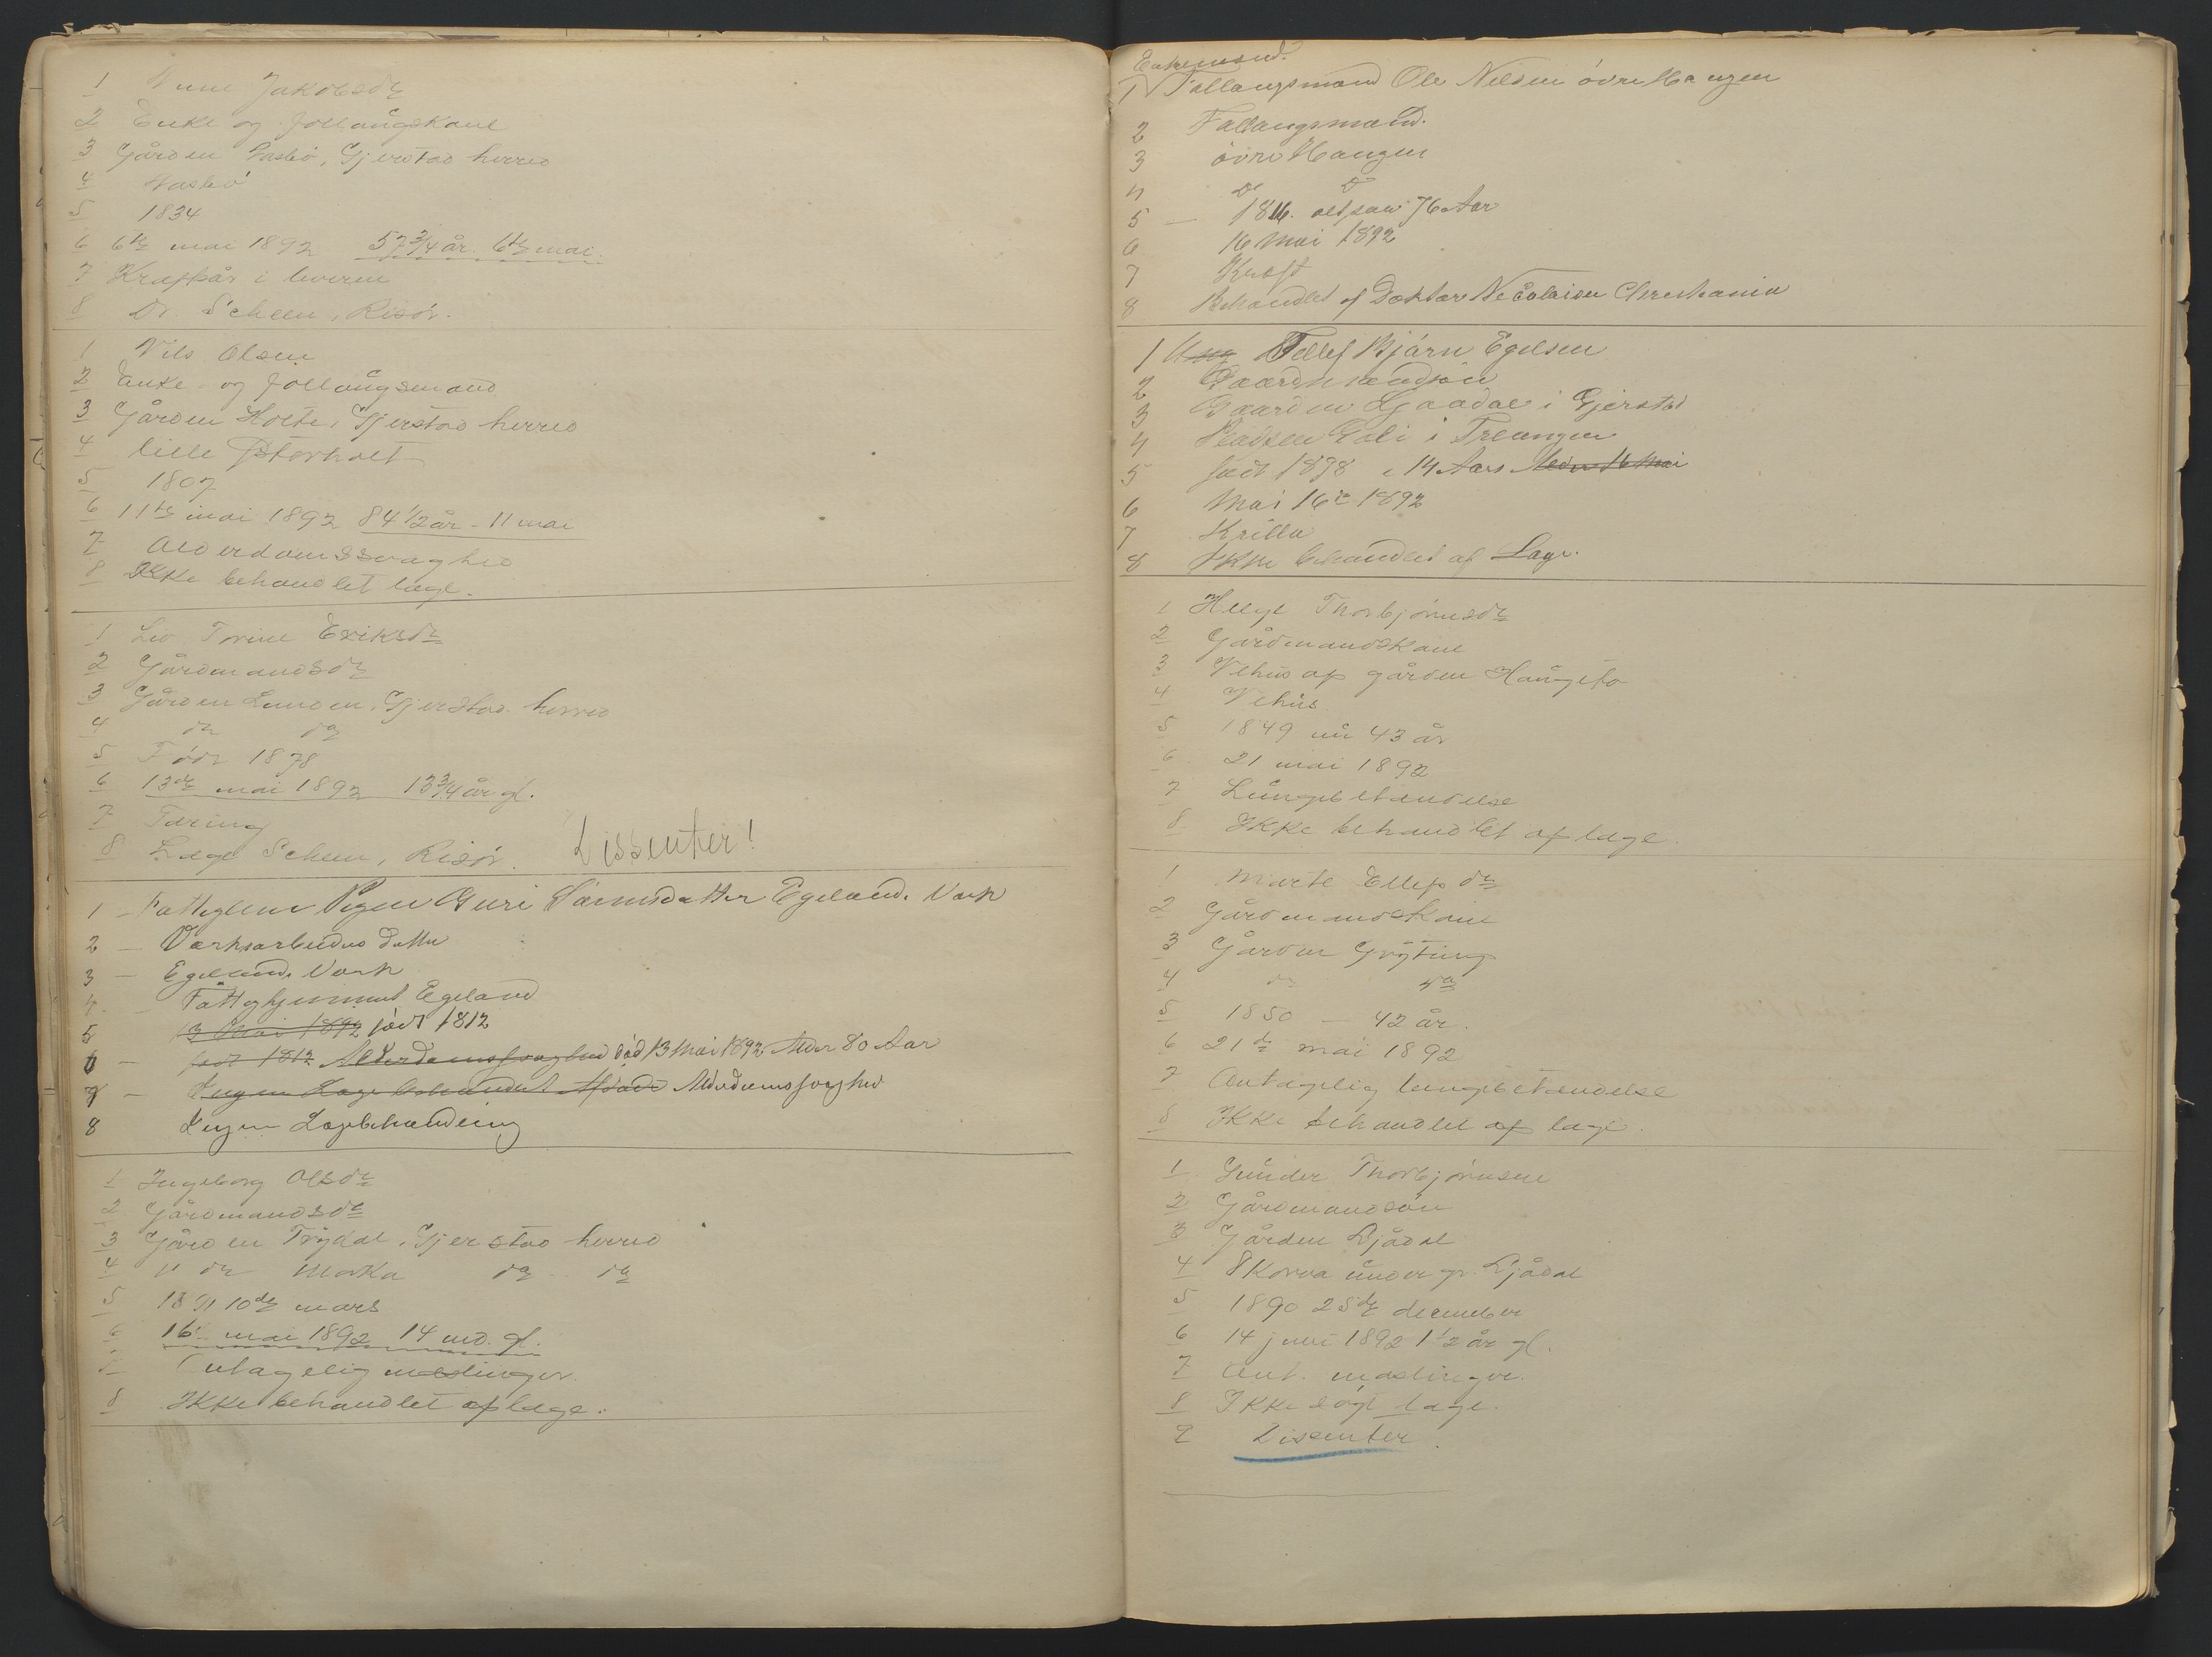 1 Anne Jakobsdtr
2 Enke og follaugskone
3 Gården Vasbø, Gjerstad herred
4 Vasbø
5 1834
6 6te mai 1892 57 3/4 år. 6te mai.
7 Kræftsår i leveren
8 Dr. Scheen, Risør.
1 Nils Olsen
2 Enke- og follaugsmand
3 Gården Holte, Gjerstad herred
4 lille Storholt
5 1807
6 11te mai 1892 84 1/2 år - 11 mai
7 Alderdomssvaghed
8 Ikke behandlet læge.
1 Torine Eriksdtr
2 Gårdmandsdtr
3 Gården Lunden, Gjerstad herred
4 do do
5 Født 1878
6 13de mai 1892 13 3/4 år gl.
7 Tæring
8 Læge Scheen, Risør. Dissenter!
1 - Fattiglem Pigen Guri Egelands Værk
2 - Værksarbeiders datter
3 - Egelands Værk
4 - Fattighjemmet Egeland
5 13 Mai 1892 født 1812
6 - født 1812 Alderdomssvaghed død 13 Mai 1892 Alder 80 Aar
7 - Ingen Læge behandlet Alderdomssvaghed
8 Ingen Lægebehandling
1 Ingeborg Olsdtr
2 Gårdmandsdtr
3 Gården Trydal, Gjerstad herred
4 " do Morka do do
5 1891 10de mars
6 16de mai 1892 14 md. gl.
7 Antagelig meslinger.
8 Ikke behandlet af læge.
Enkemand.
1 Follaugsmand Ole Nilsen øvre Haugen
2 Follaugsmand.
3 øvre Haugen
4 Do Do
5 - 1816. altsaa 76 Aar
6 16 Mai 1892
7 Kræft
8 Behandlet af Doktor Nicolaisen Christiania
1 Ung Tellef Bjørn Egelsen
2 Gaardmandsøn
3 Gaarden Ljaadal i Gjerstad
4 Pladsen i Treungen
5 født 1878, 14 Aars Alder 16 Mai
6 Mai 16de 1892
7
8 Ikke behandlet af Læge.
1 Helge Thorbjørnsdtr
2 Gårdmandskone
3 Vehus af gården Haugeto
4 Vehus
5 1849 nu 43 år
6 21 mai 1892
7 Lungebetændelse
8 Ikke behandlet af læge.
1 Marte Ellefsdtr
2 Gårdmandskone
3 Gården Gryting
4 do do
5 1850 - 42 år.
6 21de mai 1892
7 Antagelig lungebetændelse
8 Ikke behandlet af læge.
1 Gunder Thorbjørnsen
2 Gårdmandsøn
3 Gården Ljådal
4 Skorva under gr. Ljådal
5 1890 25de december
6 14 juni 1892 1 1/2 år gl.
7 Ant. mæslinger.
8 Ikke søgt læge.
9 Dissenter.